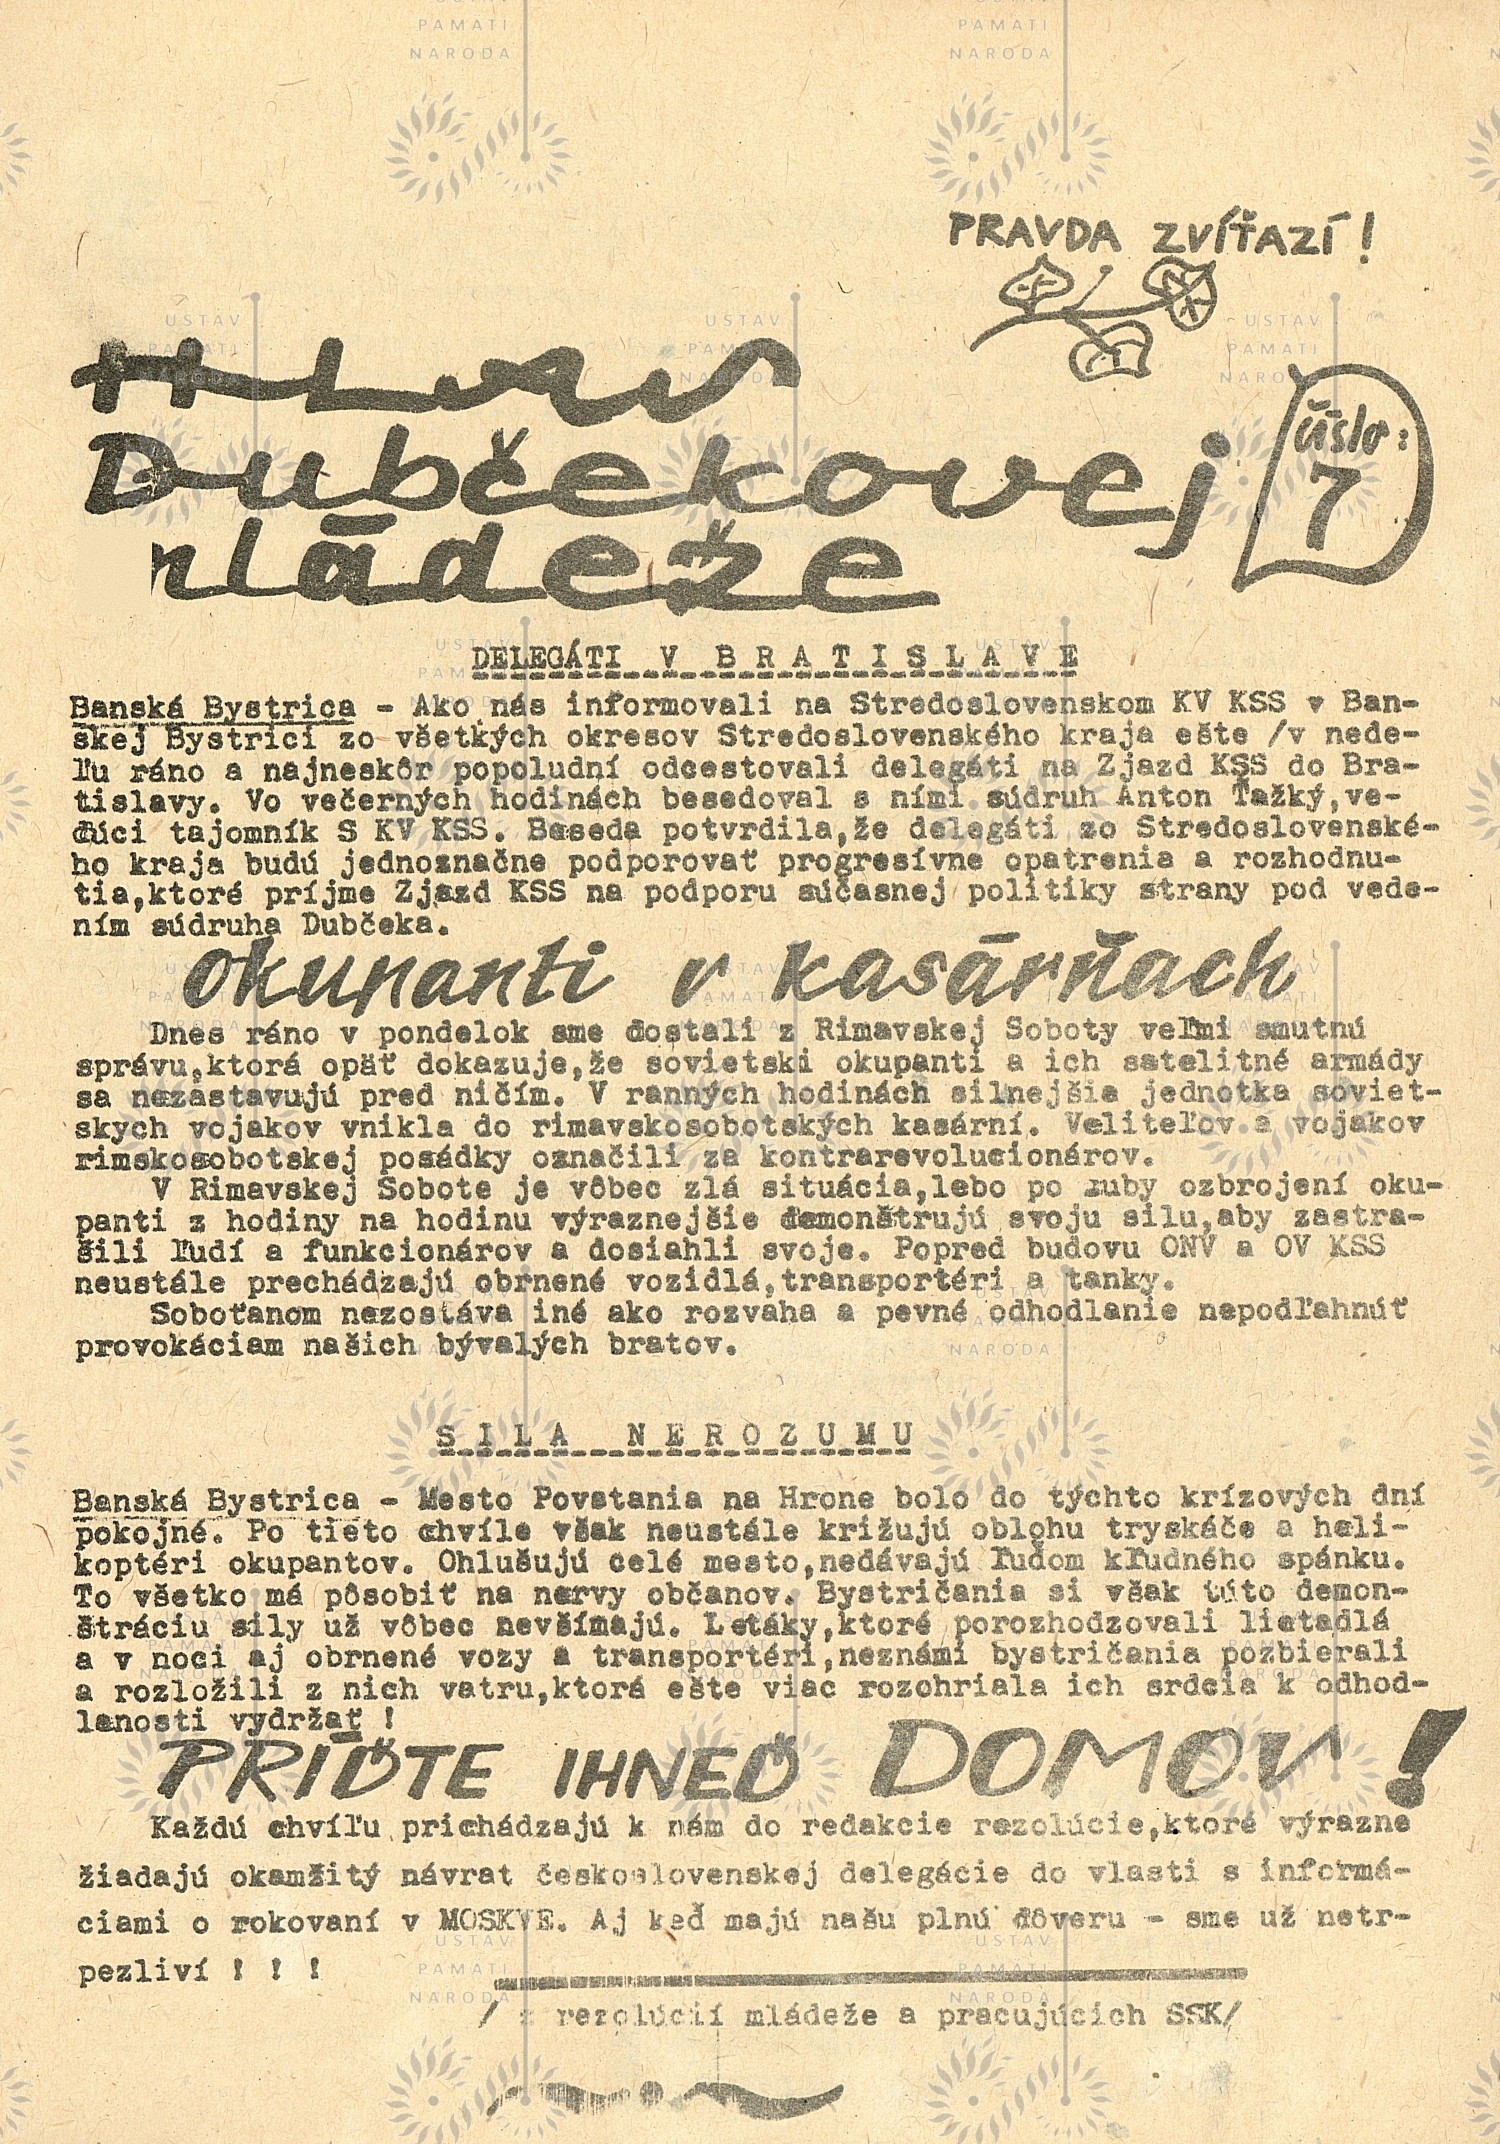 PRAVDA ZVÍŤAZÍ!
HLAS
Dubčekovej
číslo:
7
mládeže
DELEGÁTI V B R A T I S L A V E
Banská Bystrica - Ako nás informovali na Stredoslovenskom KV KSS v Ban-
skej Bystrici zo všetkých okresov Stredoslovenského kraja ešte /v nede-
ľu ráno a najneskôr popoludní odcestovali delegáti na Zjazd KSS do Bra-
tislavy. Vo večerných hodinách besedoval s ními súdruh Anton Ťažký,ve-
dúci tajomník S KV KSS. Beseda potvrdila,že delegáti zo Stredoslovenské-
ho kraja budú jednoznačne podporovať progresívne opatrenia a rozhodnu-
tia,ktoré príjme Zjazd KSS na podporu súčasnej politiky strany pod vede-
ním súdruha Dubčeka.
okupanti v kasárňach
Dnes ráno v pondelok sme dostali z Rimavskej Soboty veľmi smutnú
správu,ktorá opäť dokazuje,že sovietski okupanti a ich satelitné armády
sa nezastavujú pred ničím. V ranných hodinách silnejšia jednotka soviet-
skych vojakov vnikla do rimavskosobotských kasární. Veliteľov a vojakov
rimskosobotskej posádky označili za kontrarevolucionárov.
V Rimavskej Sobote je vôbec zlá situácia,lebo po zuby ozbrojení oku-
panti z hodiny na hodinu výraznejšie demonštrujú svoju silu,aby zastra-
šili ľudí a funkcionárov a dosiahli svoje. Popred budovu ONV a OV KSS
neustále prechádzajú obrnené vozidlá,transportéri a tanky.
Soboťanom nezostáva iné ako rozvaha a pevné odhodlanie nepodľahnúť
provokáciam našich bývalých bratov.
S I L A N E R O Z U M U
Banská Bystrica - Mesto Povstania na Hrone bolo do týchto krízových dní
pokojné. Po tieto chvíle však neustále križujú oblohu tryskáče a heli-
koptéri okupantov. Ohlušujú celé mesto,nedávajú ľuďom kľudného spánku.
To všetko má pôsobiť na nervy občanov. Bystričania si však túto demon-
štráciu sily už vôbec nevšímajú. Letáky,ktoré porozhodzovali lietadlá
a v noci aj obrnené vozy a transportéri,neznámi bystričania pozbierali
a rozložili z nich vatru,ktorá ešte viac rozohriala ich srdcia k odhod-
lanosti vydržať !
PRÍĎTE IHNEĎ DOMOV !
Každú chvíľu prichádzajú k nám do redakcie rezolúcie,ktoré výrazne
žiadajú okamžitý návrat československej delegácie do vlasti s informá-
ciami o rokovaní v MOSKVE. Aj keď majú našu plnú dôveru - sme už netr-
pezliví ! ! !
/ z rezolúcií mládeže a pracujúcich SSK/